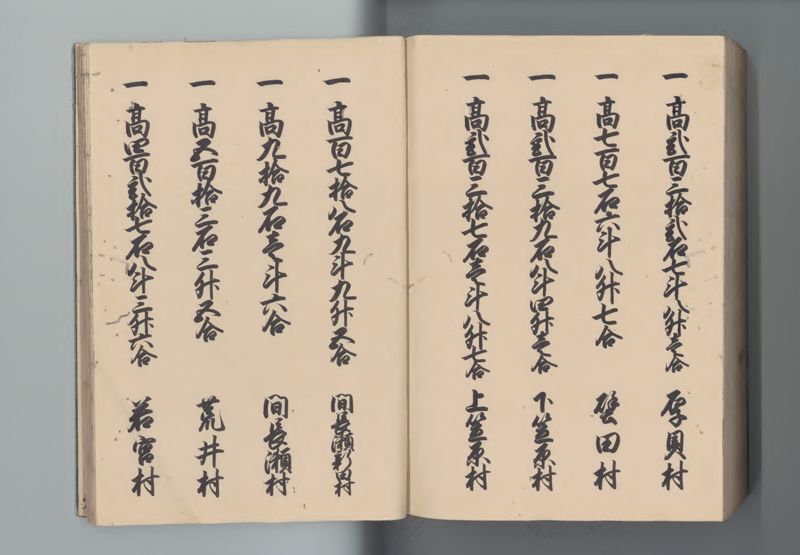 一 高弐百三拾弐石七斗八升壱合 厚貝村
一 高七百七石六斗八升七合 壁田村
一 高弐百三拾九石八斗四升壱合 下笠原村
一 高弐百三拾七石壱斗八升七合 上笠原村
一 高百七拾八石九斗九升五合 間長瀬新田村
一 高九拾九石壱斗六合 間長瀬村
一 高五百拾三石三升五合 荒井村
一 高四百弐拾七石八斗三升六合 若宮村